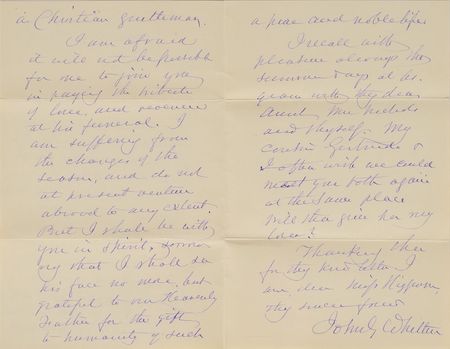 a Christian gentleman.
I am afraid
it will not be possible
for me to join you
in paying the tribute
of love, and reverence
at his funeral. I
am suffering from
the changes of the
season, and do not
at present venture
abroad to any extent.
But I shall be with
you in spirit, sorrow
ing that I shall see
his face no more, but
grateful to our Heavenly
Father for the gift
to humanity of such
a pure and noble life.
I recall with
pleasure always the
summer days at
with my dear
and thyself. My
cousin Gertrude &
I often wish we could
meet you both again
at the same place
Will thou give her my
love?
Thanking thee
for thy kind letter I
am, dear Miss
thy sincere friend
John G Whittier